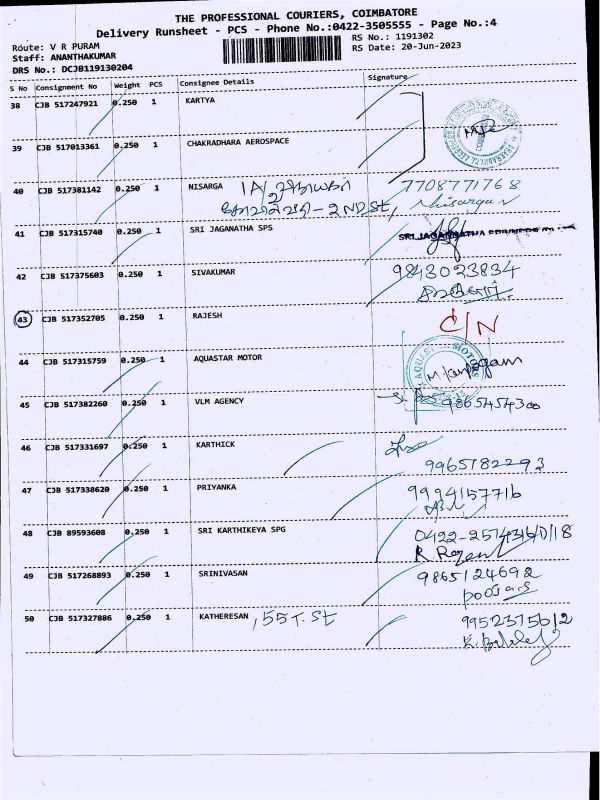 THE PROFESSIONAL COURIERS, COIMBATORE
Delivery Runsheet - PCS - Phone No.:0422-3505555 - Page No.:4
Route: V R PURAM
RS No.: 1191302
Staff: ANANTHAKUMAR
RS Date: 20-Jun-2023
DRS No.: DCJB119130204
S No Consignment No Weight PCS Consignee Details Signature
38 CJB 517247921 0.250 1 KARTYA
39 CJB 517013361 0.250 1 CHAKRADHARA AEROSPACE
40 CJB 517381142 0.250 1 NISARGA 1A/2 7708771768
- 2ND ST, Nisarga
41 CJB 517315740 0.250 1 SRI JAGANATHA SPS SRI JAGANNATHA
42 CJB 517375603 0.250 1 SIVAKUMAR 9843023834
43 CJB 517352705 0.250 1 RAJESH C/N
44 CJB 517315759 0.250 1 AQUASTAR MOTOR MOTORS
45 CJB 517382260 0.250 1 VLM AGENCY 9865454300
46 CJB 517331697 0.250 1 KARTHICK
9965782293
47 CJB 517338620 0.250 1 PRIYANKA 9994157716
48 CJB 89593608 0.250 1 SRI KARTHIKEYA SPG
49 CJB 517268893 0.250 1 SRINIVASAN 9865124692
50 CJB 517327886 0.250 1 KATHERESAN , 55 T. St 9952375612